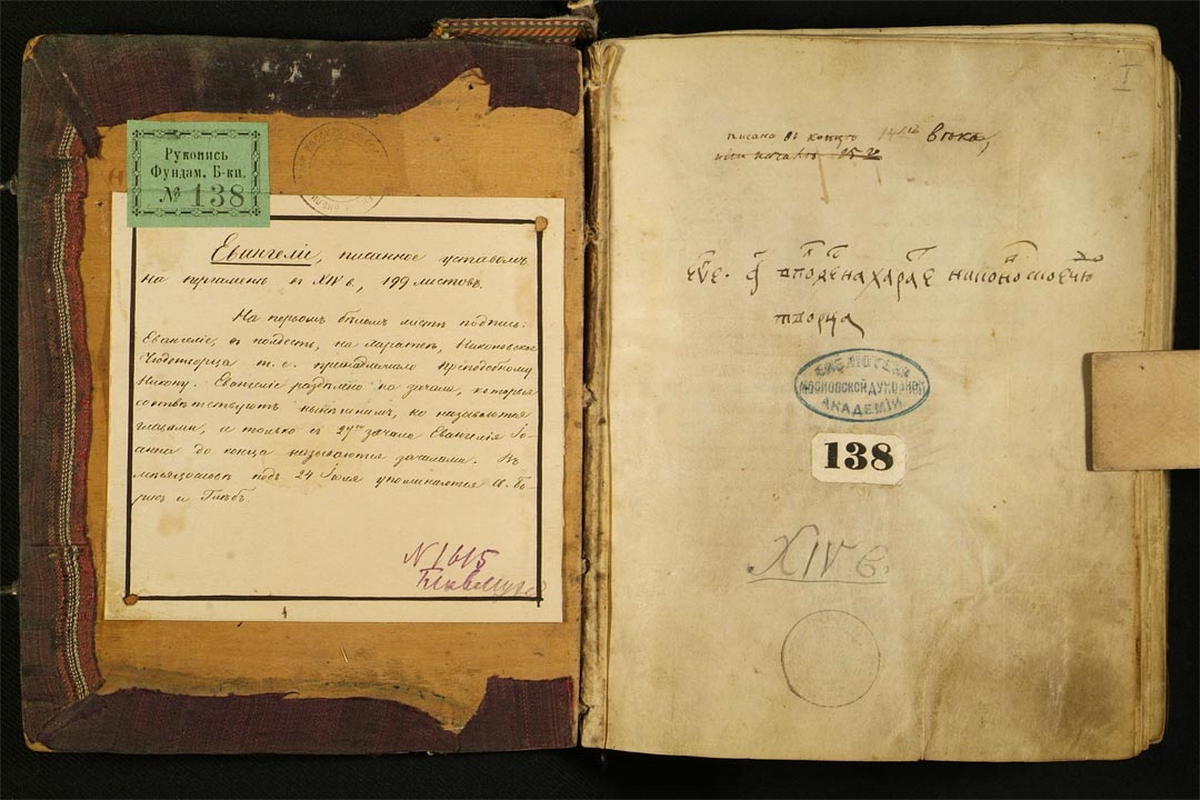 Рукопись
Фундам. Б-ки.
№ 138
Евангеліе, писанное уставомъ
на пергаменѣ въ XIV в., 199 листовъ.
На первомъ бѣломъ листѣ подпись:
Евангеліе, въ полдесть, на харатеѣ, Никоновское
Чюдотворца т. е. принадлежало Преподобному
Никону. Евангеліе раздѣлено на зачала, которыя
соотвѣтствуютъ нынѣшнимъ, но называются
главами, и только съ 27го зачала Евангелія Іо-
анна до конца называются зачалами. Въ
мѣсяцословѣ подъ 24 Іюля упоминается св. Бо-
рисъ и Глѣбъ.
N 1615
I
писано въ концѣ 14го вѣка,
или началѣ 15го
творца
БИБЛІОТЕКА
МОСКОВСКОЙ ДУХОВНОЙ
АКАДЕМІИ
138
XIV в.